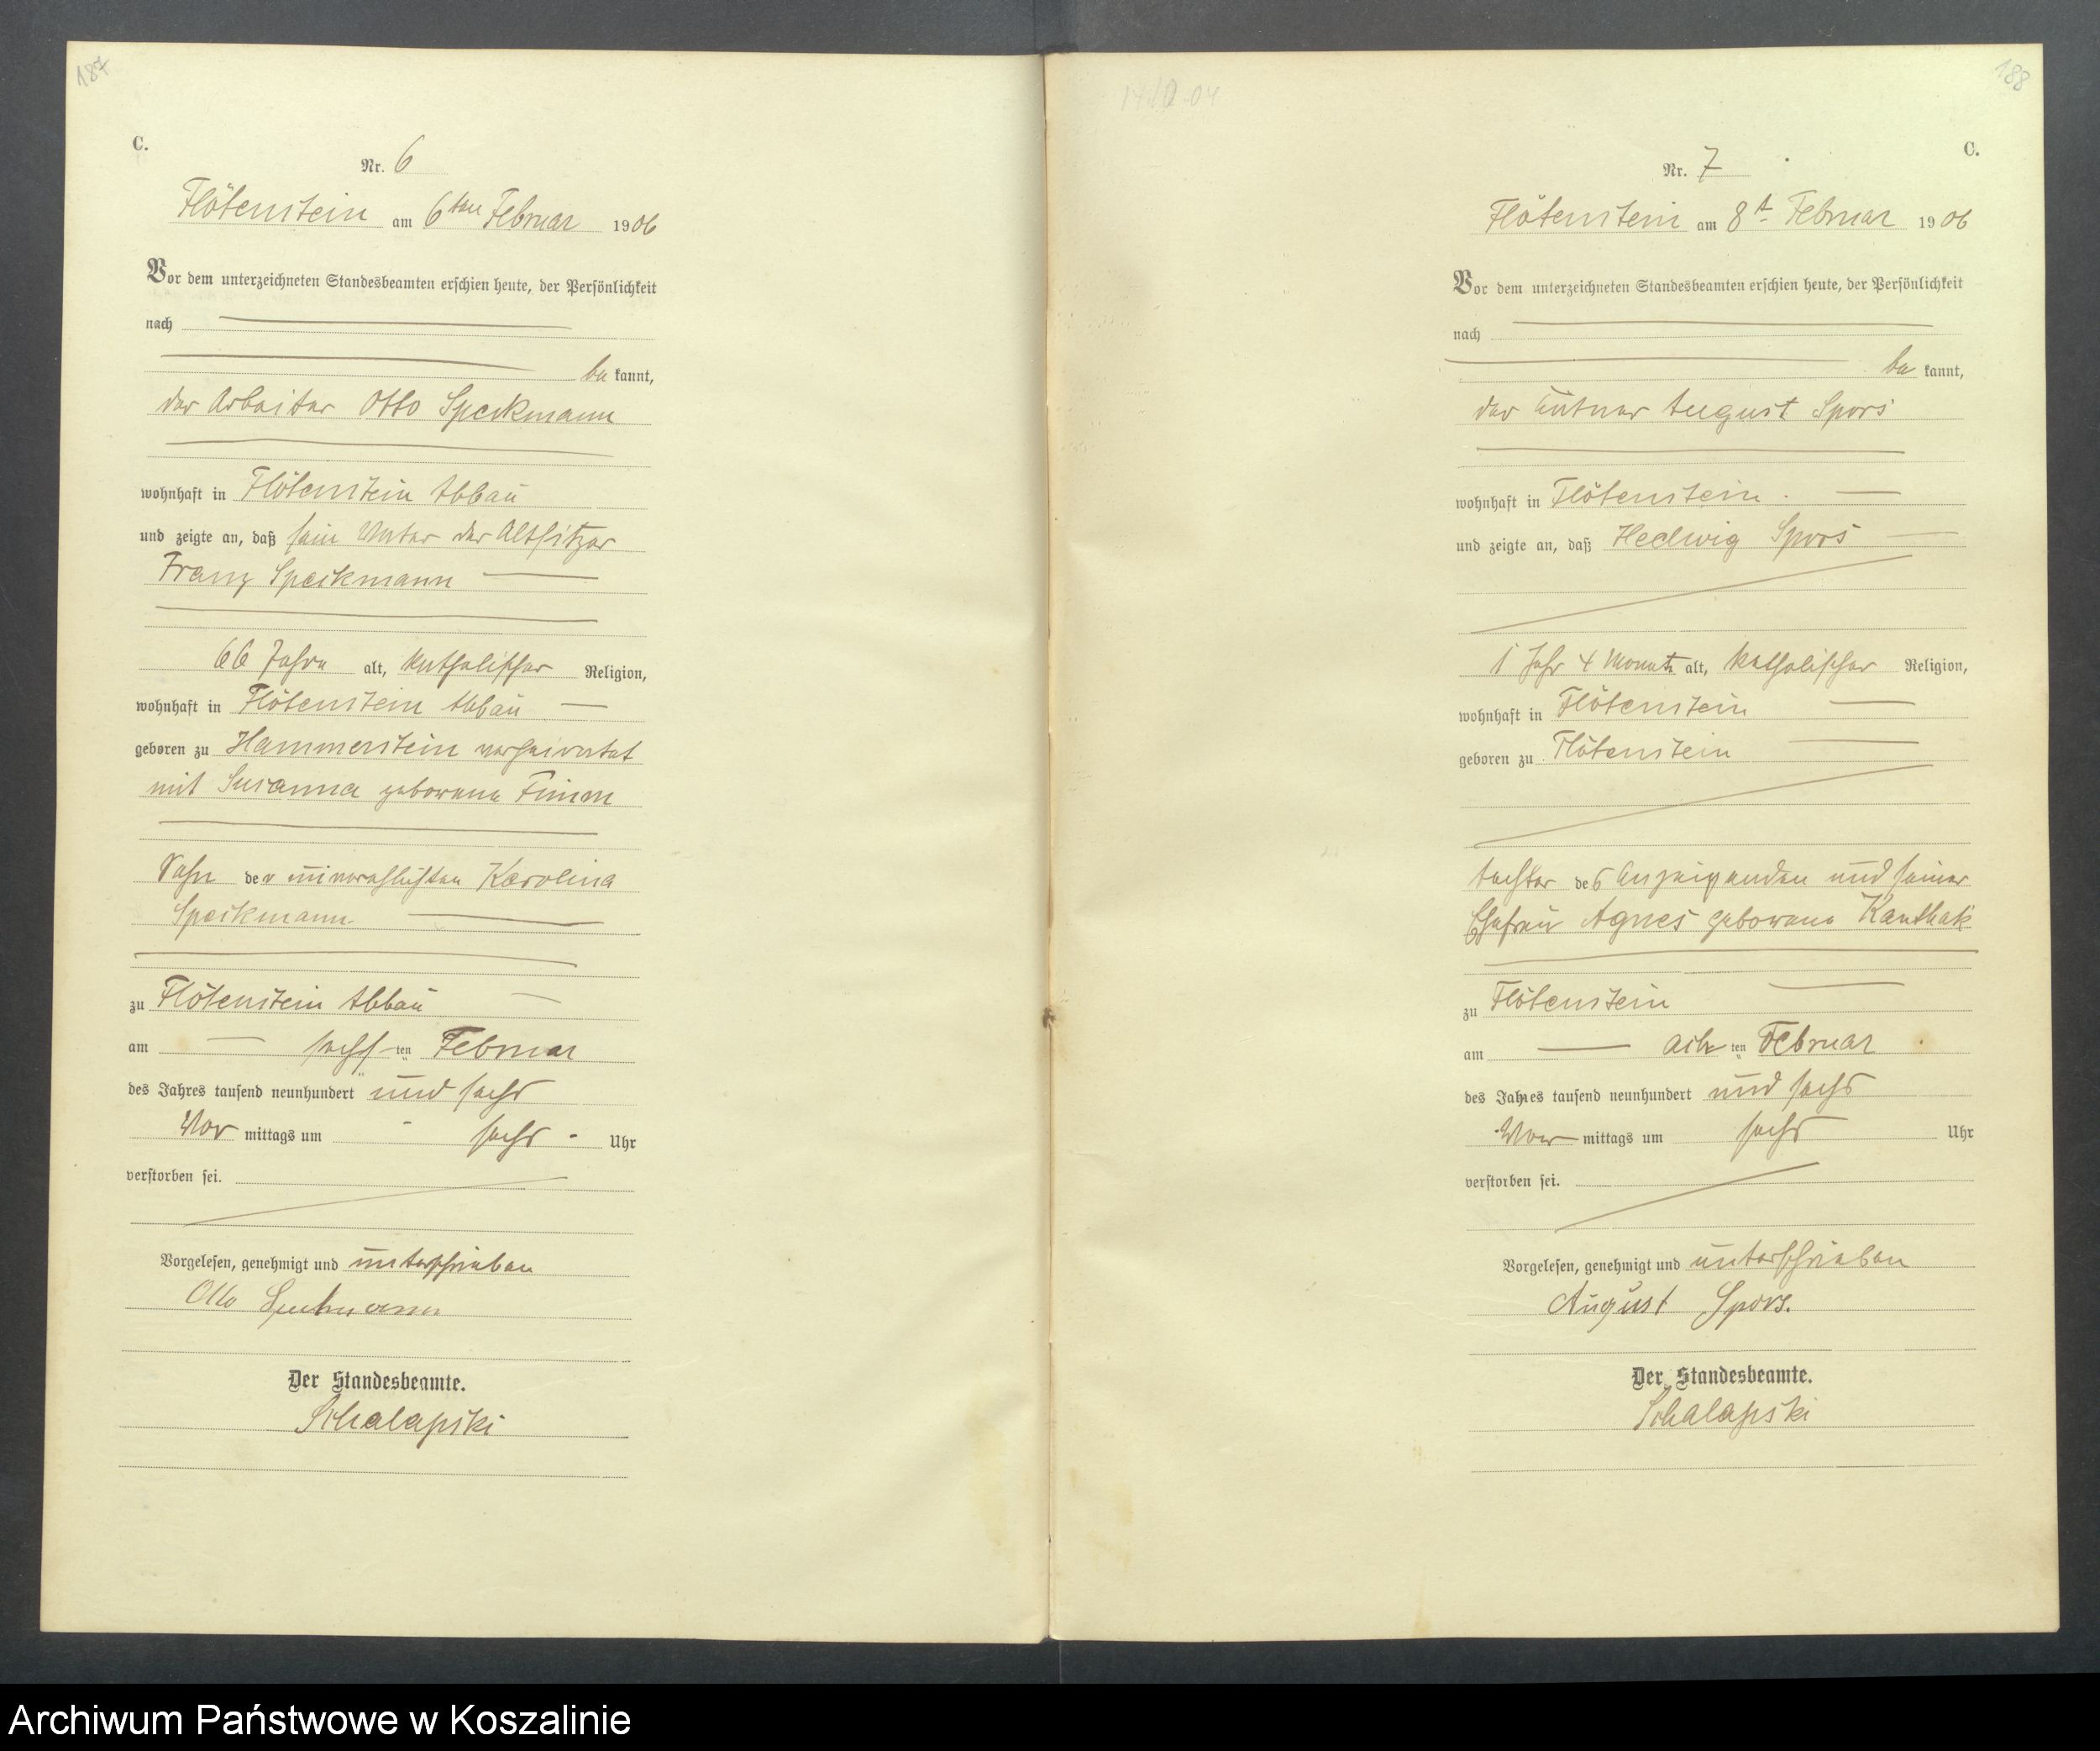 187
C.
Nr. 6
Flötenstein am 6ten Februar 1906
Vor dem unterzeichneten Standesbeamten erschien heute, der Persönlichkeit
nach
be kannt,
der Arbeiter Otto Speckmann
wohnhaft in Flötenstein Abbau
und zeigte an, daß sein Vater der Altsitzer
Franz Speckmann
66 Jahre alt, katholischer Religion,
wohnhaft in Flötenstein Abbau
geboren zu Hammerstein verheiratet
mit Susanna geborene
Sohn der unverehelichten Karolina
Speckmann
zu Flötenstein Abbau
am sechsten Februar
des Jahres tausend neunhundert und sechs
Vor mittags um sechs Uhr
verstorben sei.
Vorgelesen, genehmigt und unterschrieben
Otto Speckmann
Der Standesbeamte.
Schalapski
188
C.
Nr. 7
Flötenstein am 8t Februar 1906
Vor dem unterzeichneten Standesbeamten erschien heute, der Persönlichkeit
nach
be kannt,
der August Spors
wohnhaft in Flötenstein.
und zeigte an, daß Hedwig Spors
1 Jahr 4 Monate alt, katholischer Religion,
wohnhaft in Flötenstein
geboren zu Flötenstein
Tochter des Anzeigenden und seiner
Ehefrau Agnes geborene Kanthak
zu Flötenstein
am achten Februar
des Jahres tausend neunhundert und sechs
Vor mittags um sechs Uhr
verstorben sei.
Vorgelesen, genehmigt und unterschrieben
August Spors.
Der Standesbeamte.
Schalapski
Archiwum Państwowe w Koszalinie